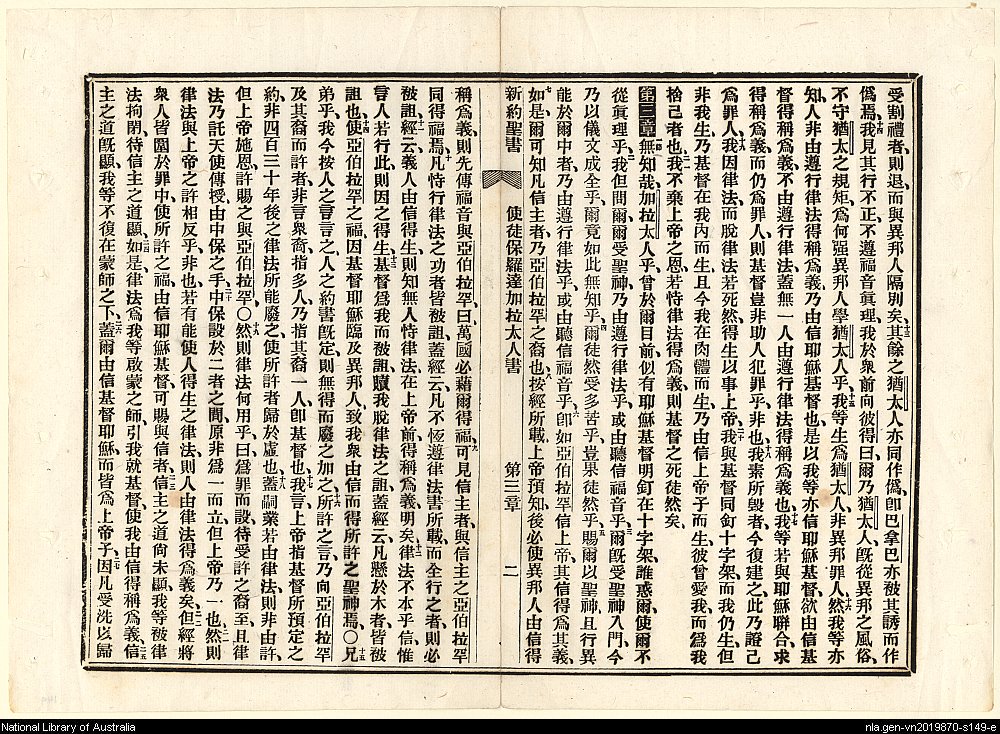 受割禮者則退而與異邦人隔別矣十三其餘之猶太人亦同作僞卽巴拿巴亦被其誘而作
僞焉十四我見其行不正不遵福音眞理我於衆前向彼得曰爾乃猶太人旣從異邦之風俗
不守猶太之規矩爲何强異邦人學猶太人乎十五我等生爲猶太人非異邦罪人十六然我等亦
知人非由遵行律法得稱爲義乃由信耶穌基督也是以我等亦信耶穌基督欲由信基
督得稱爲義不由遵行律法蓋無一人由遵行律法得稱爲義也十七我等若與耶穌聯合求
得稱爲義而仍爲罪人則基督豈非助人犯罪乎非也十八我素所毀者今復建之此乃證己
爲罪人十九我因律法而脫律法若死然得生以事上帝二十我與基督同釘十字架而我仍生但
非我生乃基督在我內而生且今我在肉體而生乃由信上帝子而生彼曾愛我而爲我
捨己者也二一我不棄上帝之恩若恃律法得爲義則基督之死徒然矣
第三章一無知哉加拉太人乎曾於爾目前似有耶穌基督明釘在十字架誰惑爾使爾不
從眞理乎二我但問爾爾受聖神乃由遵行律法乎或由聽信福音乎三爾旣受聖神入門今
乃以儀文成全乎爾竟如此無知乎四爾徒然受多苦乎豈果徒然乎五賜爾以聖神且行異
能於爾中者乃由遵行律法乎或由聽信福音乎六卽如亞伯拉罕信上帝其信得爲其義
七如是爾可知凡信主者乃亞伯拉罕之裔也八按經所載上帝預知後必使異邦人由信得
新約聖書 使徒保羅達加拉太人書 第三章 二
稱爲義則先傳福音與亞伯拉罕曰萬國必藉爾得福九可見信主者與信主之亞伯拉罕
同得福焉十凡恃行律法之功者皆被詛蓋經云凡不恆遵律法書所載而全行之者則必
被詛十一經云義人由信得生則知無人恃律法在上帝前得稱爲義明矣十二律法不本乎信惟
言人若行此則因之得生十三基督爲我而被詛贖我脫律法之詛蓋經云凡懸於木者皆被
詛也十四使亞伯拉罕之福因基督耶穌臨及異邦人致我衆由信而得所許之聖神焉〇十五兄
弟乎我今按人之言言之人之約書旣定則無得而廢之加之十六所許之言乃向亞伯拉罕
及其裔而許者非言衆裔指多人乃指其裔一人卽基督也十七我言上帝指基督所預定之
約非四百三十年後之律法所能廢之使所許者歸於虛也十八蓋嗣業若由律法則非由許
但上帝施恩許賜之與亞伯拉罕〇十九然則律法何用乎曰爲罪而設待受許之裔至且律
法乃託天使傳授由中保之手二十中保設於二者之間原非爲一而立但上帝乃一也二一然則
律法與上帝之許相反乎非也若有能使人得生之律法則人由律法得爲義矣二二但經將
衆人皆圈於罪中使所許之福由信耶穌基督可賜與信者二三信主之道尙未顯我等被律
法拘閉待信主之道顯二四如是律法爲我等啟蒙之師引我就基督使我由信得稱爲義二五信
主之道旣顯我等不復在蒙師之下二六蓋爾由信基督耶穌而皆爲上帝子二七因凡受洗以歸
National Library of Australia
nla.gen-vn2019870-s149-e